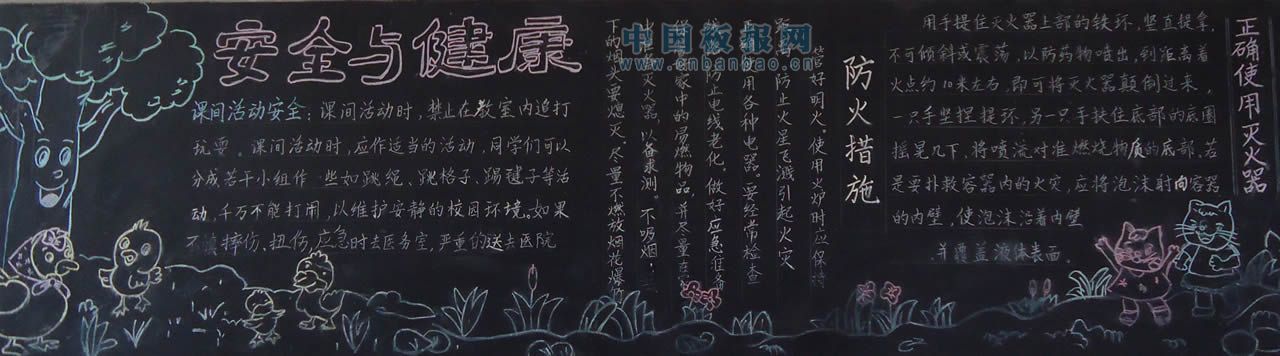 安全与健康
课间活动安全：课间活动时，禁止在教室内追打
玩耍。课间活动时，应作适当的活动，同学们可以
分成若干小组作一些如跳绳、跳格子、踢毽子等活
动，千万不能打闹，以维护安静的校园环境。如果
不慎摔伤、扭伤，应急时去医务室，严重的送去医院
中国板报网
www.cnbanbao.cn
防火措施
管好明火。使用火炉时应保持
防止火星飞溅引起火灾
用各种电器。要经常检查
防止电线老化。做好应急准备
家中的易燃物品，并尽量在
灭火器，以备求测。不吸烟，
下的烟头要熄灭，尽量不燃放烟花爆
正确使用灭火器
用手提住灭火器上部的铁环，竖直提拿，
不可倾斜或震荡，以防药物喷出，到距离着
火点约10米左右，即可将灭火器颠倒过来，
一只手竖捏提环，另一只手扶住底部的底圈
摇晃几下，将喷流对准燃烧物质的底部，若
是要扑救容器内的火灾，应将泡沫射向容器
的内壁，使泡沫沿着内壁
并覆盖液体表面。